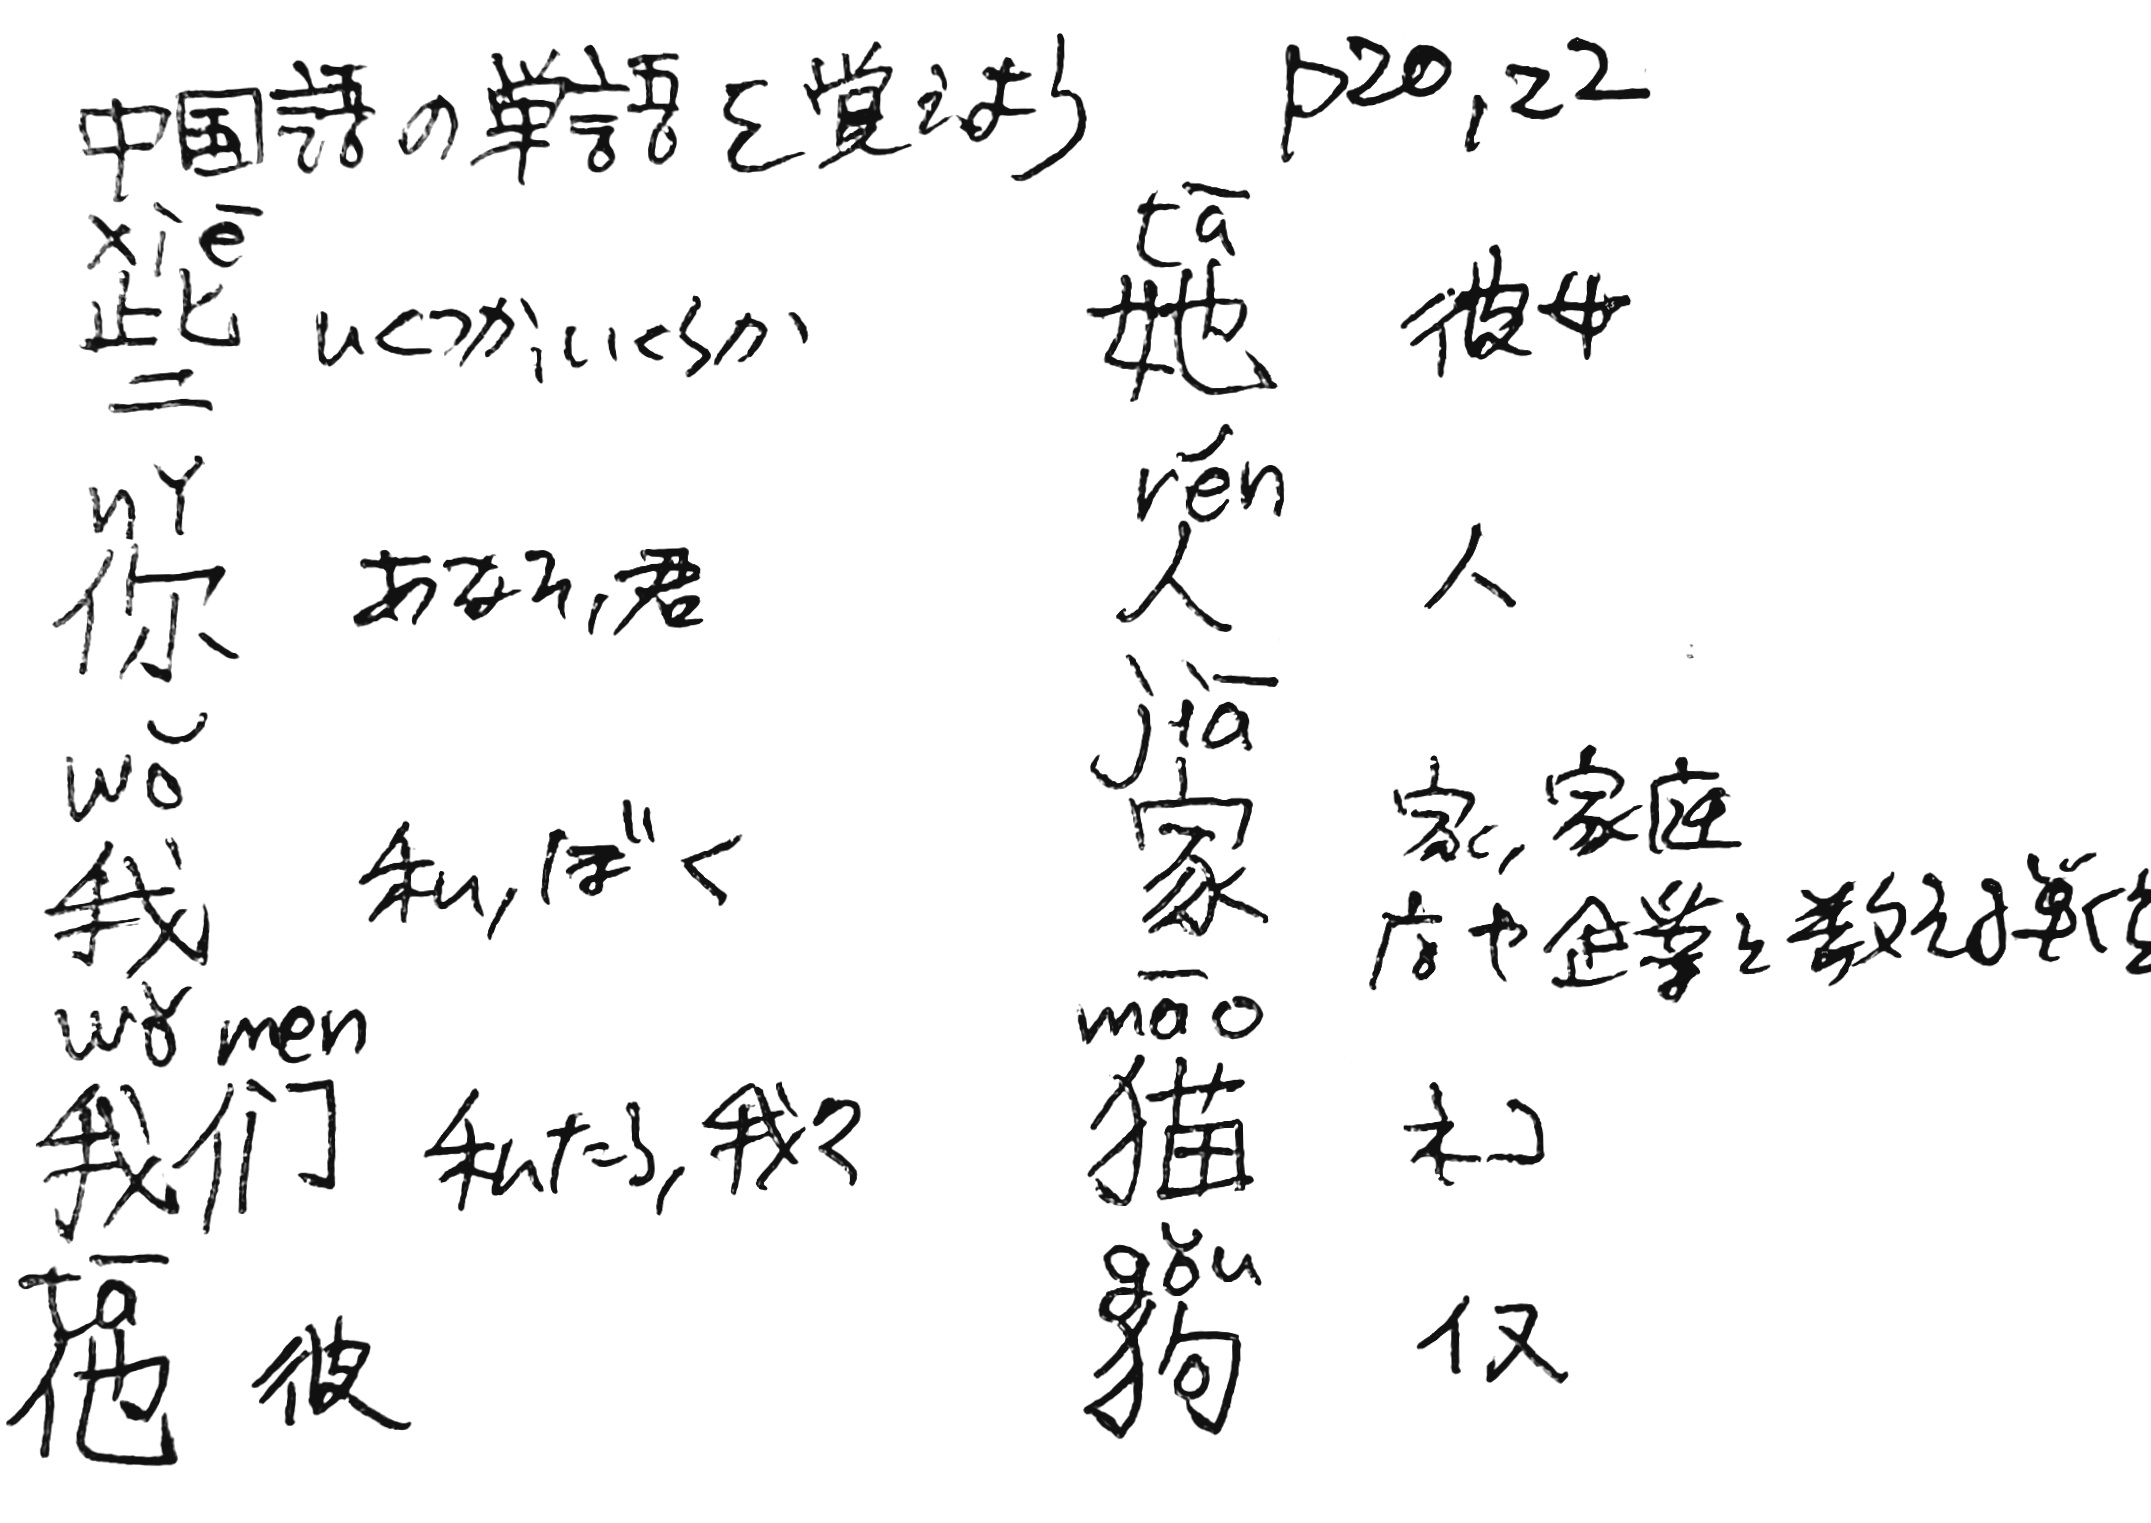 中国語の単語を覚えよう p20,22
xiē
些 いくつか,いくらか
nǐ
你 あなた,君
wǒ
我 私,ぼく
wǒ men
我们 私たち,我々
tā
他 彼
tā
她 彼女
rén
人 人
jiā
家 家,家庭
店や企業を数える単位
māo
猫 ネコ
gǒu
狗